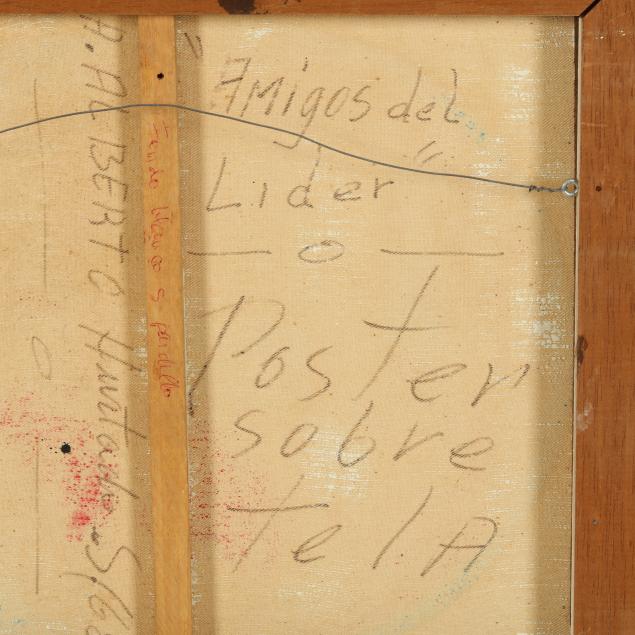 Amigos del
Lider"
— o —
Poster
sobre
telA
A. ALBERTO Hurtado